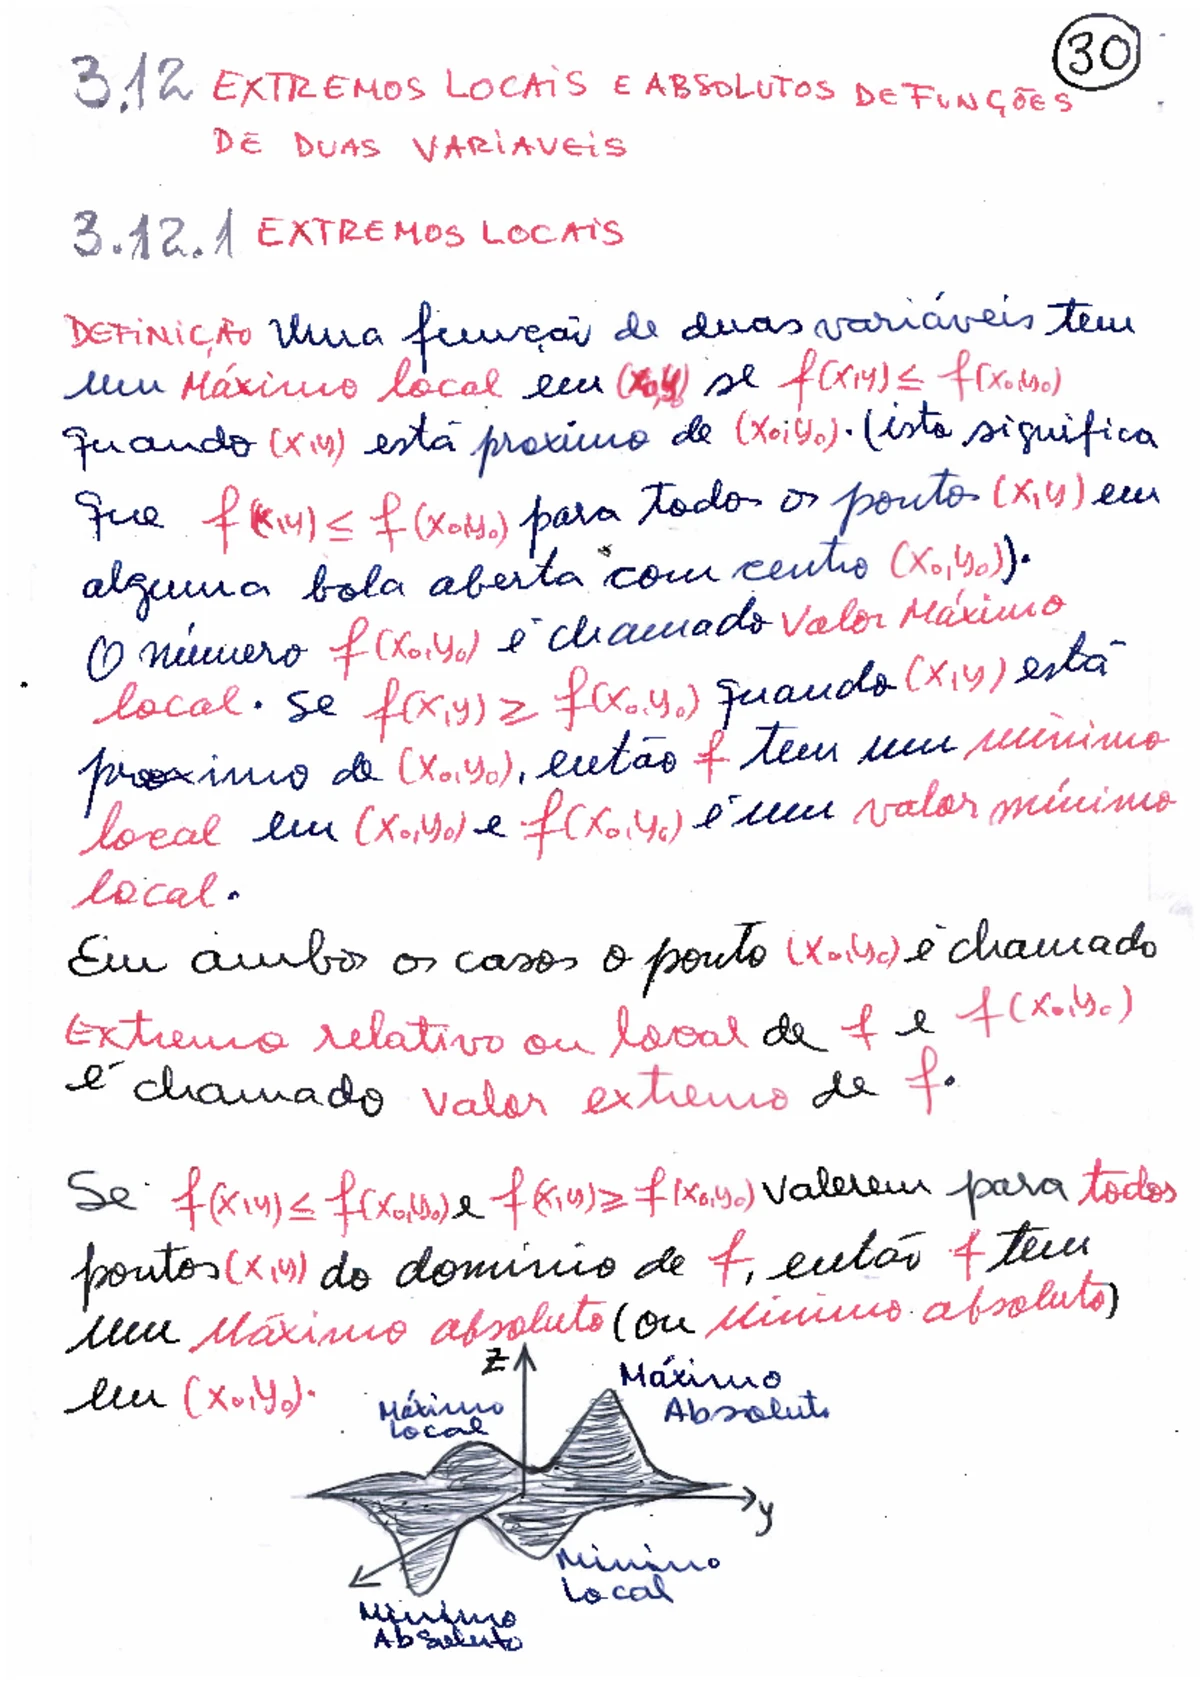 30
3.12 EXTREMOS LOCAIS E ABSOLUTOS DE FUNÇÕES
DE DUAS VARIAVEIS
3.12.1 EXTREMOS LOCAIS
DEFINIÇÃO Uma função de duas variáveis tem
um Máximo local em (x₀,y₀) se f(x,y) ≤ f(x₀,y₀)
quando (x,y) está proximo de (x₀,y₀). (isto significa
que f(x,y) ≤ f(x₀,y₀) para todos os pontos (x,y) em
alguma bola aberta com centro (x₀,y₀)).
O número f(x₀,y₀) é chamado Valor Máximo
local. Se f(x,y) ≥ f(x₀,y₀) quando (x,y) está
proximo de (x₀,y₀), então f tem um mínimo
local em (x₀,y₀) e f(x₀,y₀) é um valor mínimo
local.
Em ambos os casos o ponto (x₀,y₀) é chamado
Extremo relativo ou local de f e f(x₀,y₀)
é chamado valor extremo de f.
Se f(x,y) ≤ f(x₀,y₀) e f(x,y) ≥ f(x₀,y₀) valerem para todos
pontos (x,y) do domínio de f, então f tem
um Máximo absoluto (ou Mínimo absoluto)
em (x₀,y₀).
Z
Máximo
Absoluto
Máximo
Local
y
Mínimo
Local
Mínimo
Absoluto